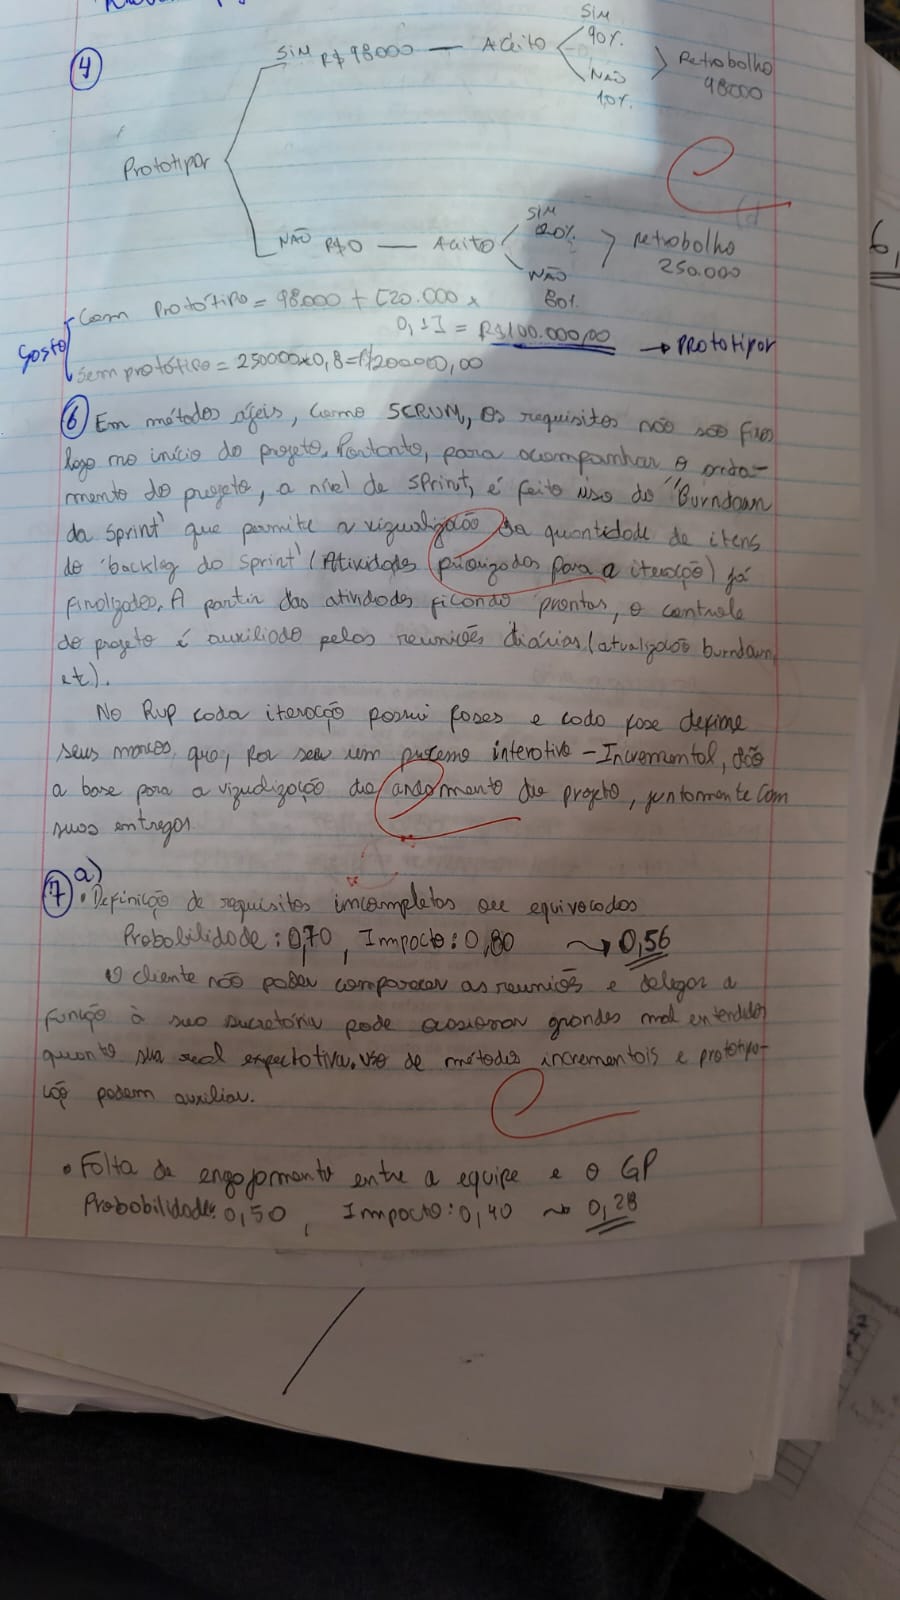 4
SIM R$ 98000 — Aceito
SIM
90%
NÃO
10%
Retrabalho
98000
Prototipar
NÃO R$0 — Aceito
SIM
20%
NÃO
80%
Retrabalho
250.000
6,
Gosto
Com Protótipo = 98.000 + [20.000 x
0,1] = R$100.000,00 → Prototipar
Sem protótico = 250000x0,8=R$200000,00
6 Em métodos ágeis, como SCRUM, os requisitos não são fixos
logo no início do projeto. Portanto, para acompanhar o anda-
mento do projeto, a nível de sprint, é feito uso do "Burndown
da sprint" que permite a vizualização da quantidade de itens
do 'backlog do sprint' (Atividades priorizadas para a iteração) já
finalizados. A partir das atividades ficando prontas, o controle
do projeto é auxiliado pelas reuniões diárias (atualização burndown,
et.).
No Rup cada iteração possui fases e cada fase define
seus marcos, que, por ser um processo interativo - Incremental, dão
a base para a vizualização do andamento do projeto, juntamente com
suas entregas
7 a)
• Definição de requisitos imcompletos ou equivocados
Probabilidade: 0,70, Impacto: 0,80 ~> 0,56
O cliente não poder comparecer as reuniões e delegar a
função à sua secretária pode ocasionar grandes mal entendidos
quanto sua real expectativa. Uso de métodos incrementais e prototipa-
ção podem auxiliar.
• Falta de engajamento entre a equipe e o GP
Probabilidade: 0,50, Impacto: 0,40 ~> 0,28